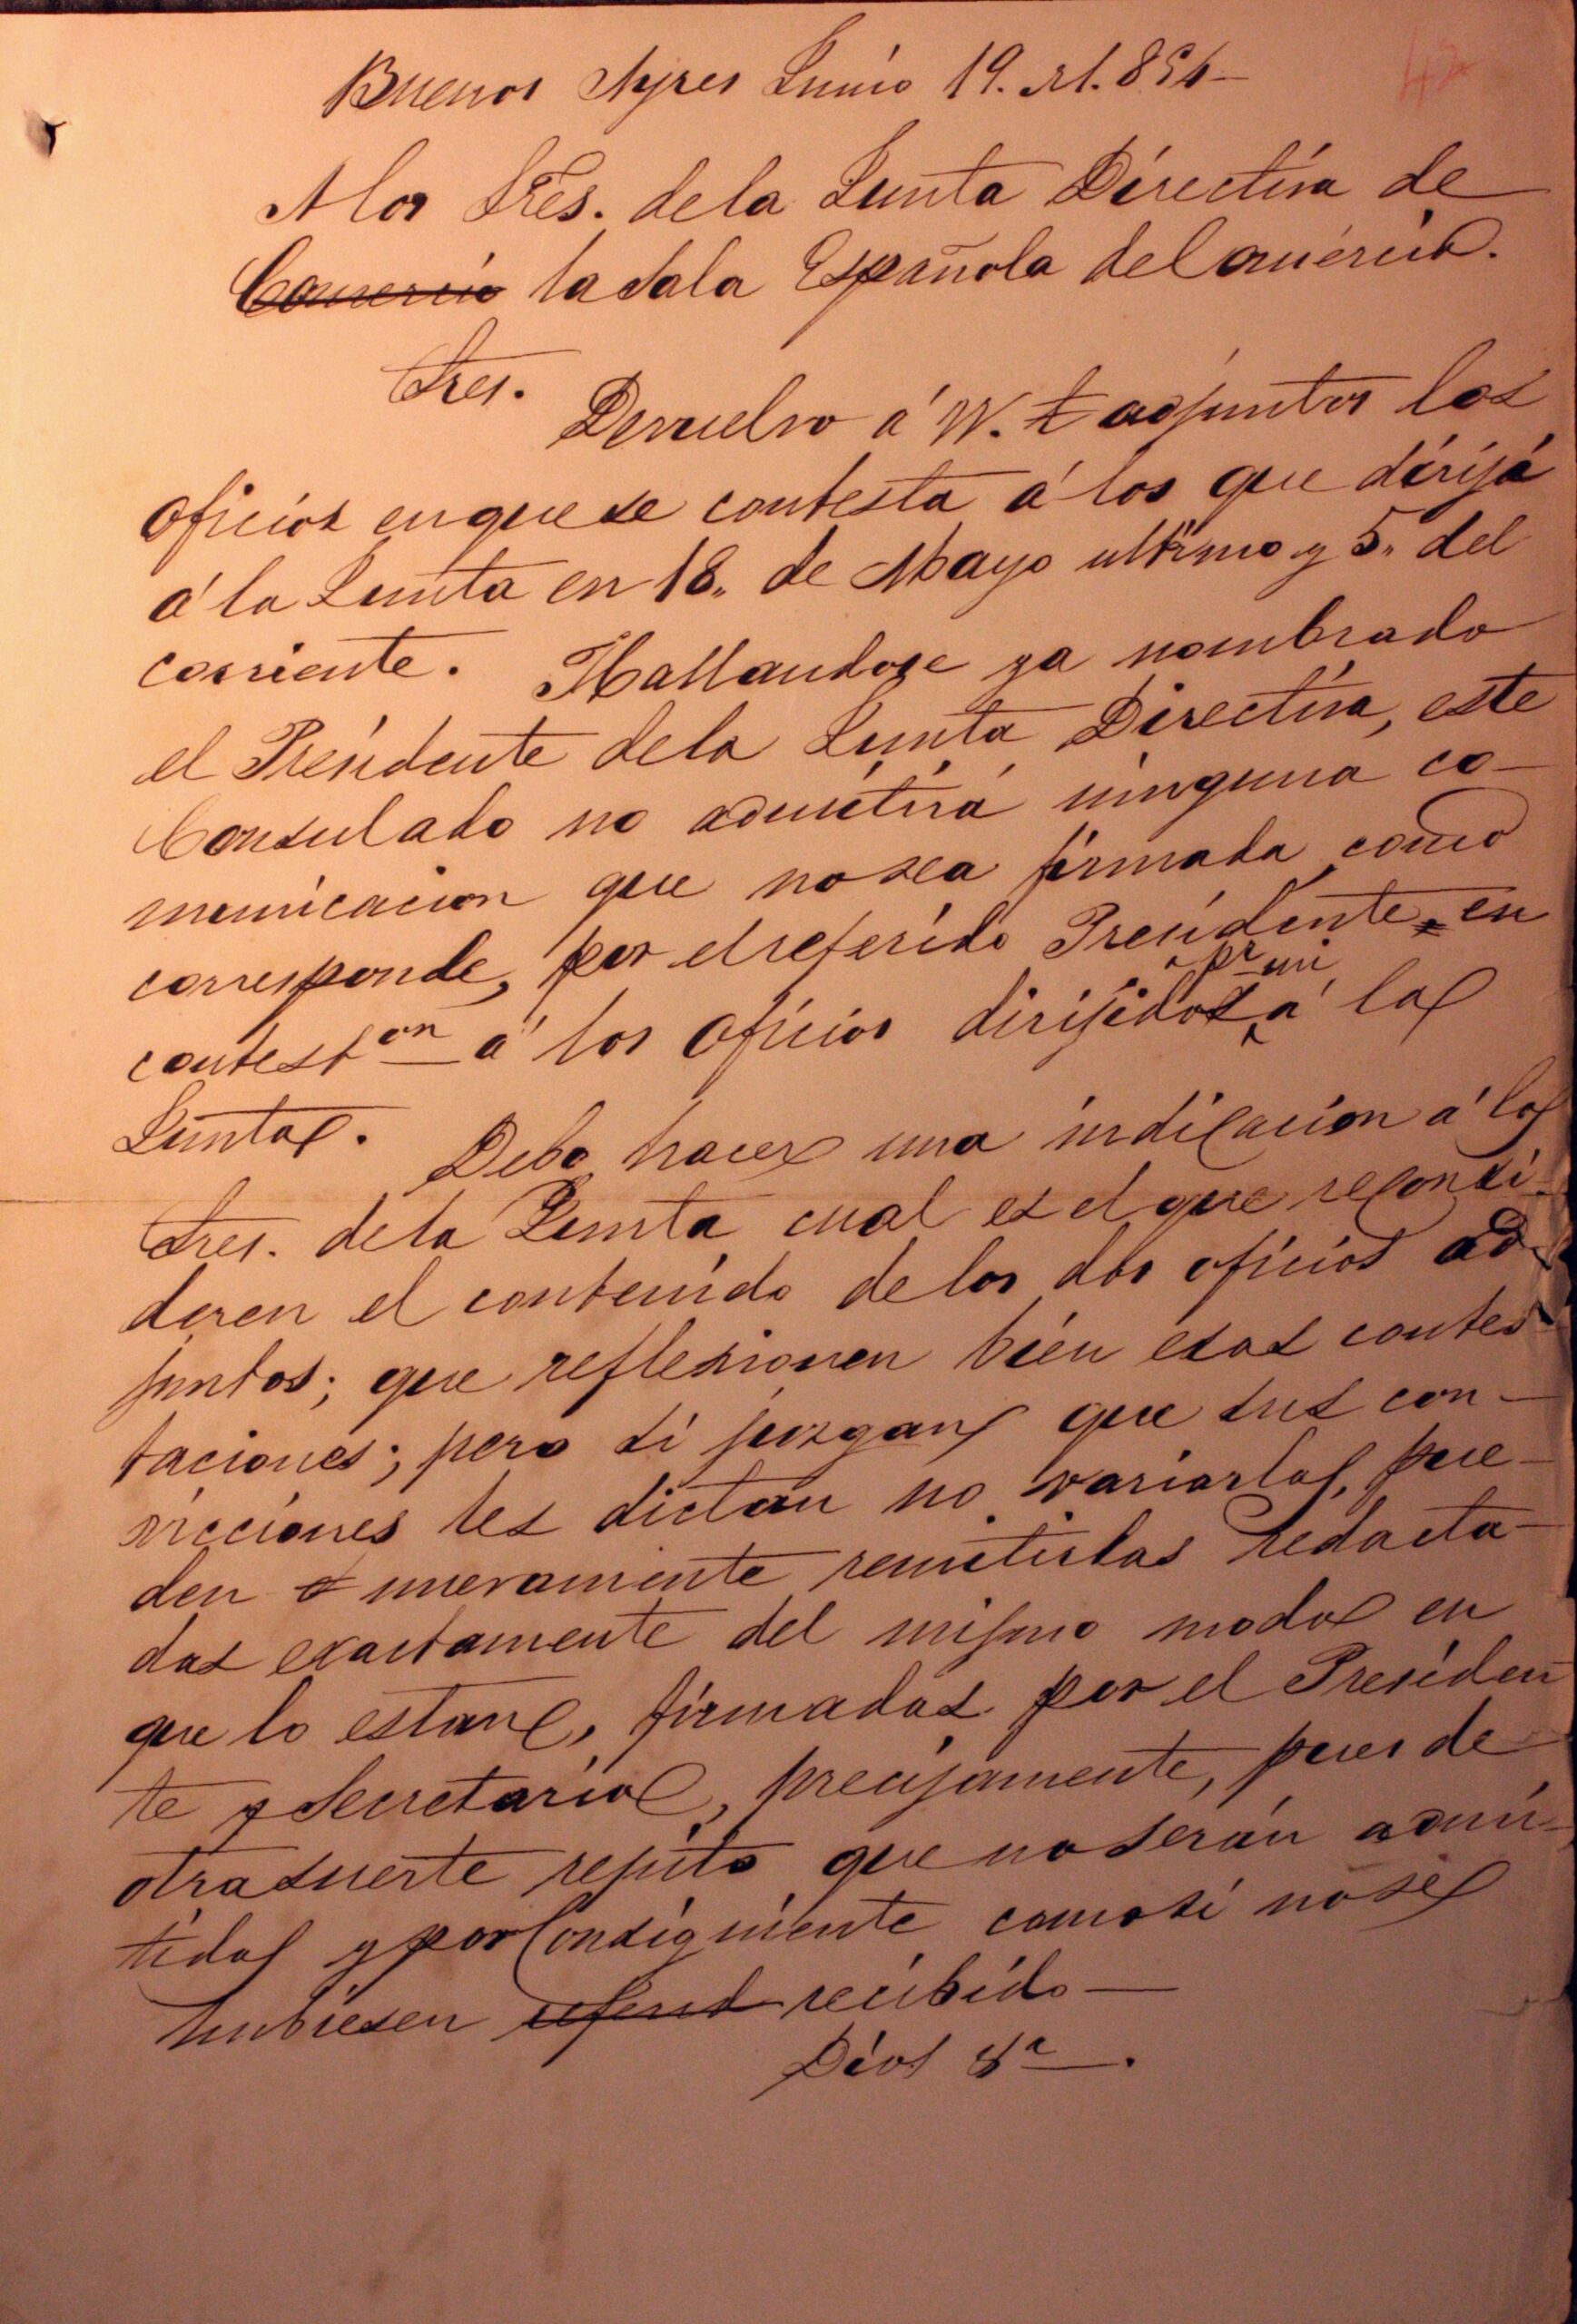 42
Buenos Ayres Junio 19. de 1.854
A los Sres. de la Junta Directiva de
Comercio la Sala Española de Comercio.
Sres.
Devuelvo á VV. adjuntos los
oficios en que se contesta á los que dirijí
á la Junta en 18,, de Mayo ultimo y 5,, del
corriente. Hallandose ya nombrado
el Presidente de la Junta Directiva, este
Consulado no admitirá ninguna co-
municacion que no sea firmada, como
corresponde, por el referido Presidente, en
conteston á los oficios dirijidos pr mi á la
Junta. Debo hacer una indicacion á los
Sres. de la Junta cual es el que reconsi-
deren el contenido de los dos oficios ad-
juntos; que reflexionen bien esas contes-
taciones; pero si juzgan que sus con-
vicciones les dictan no variarlas, pue-
den nuevamente remitirlas redacta-
das exactamente del mismo modo en
que lo estan, firmadas por el Presiden-
te y Secretario, precisamente, pues de
otra suerte repito que no serán admi-
tidas y por consiguiente como si no se
hubiesen recibido
Dios &a.